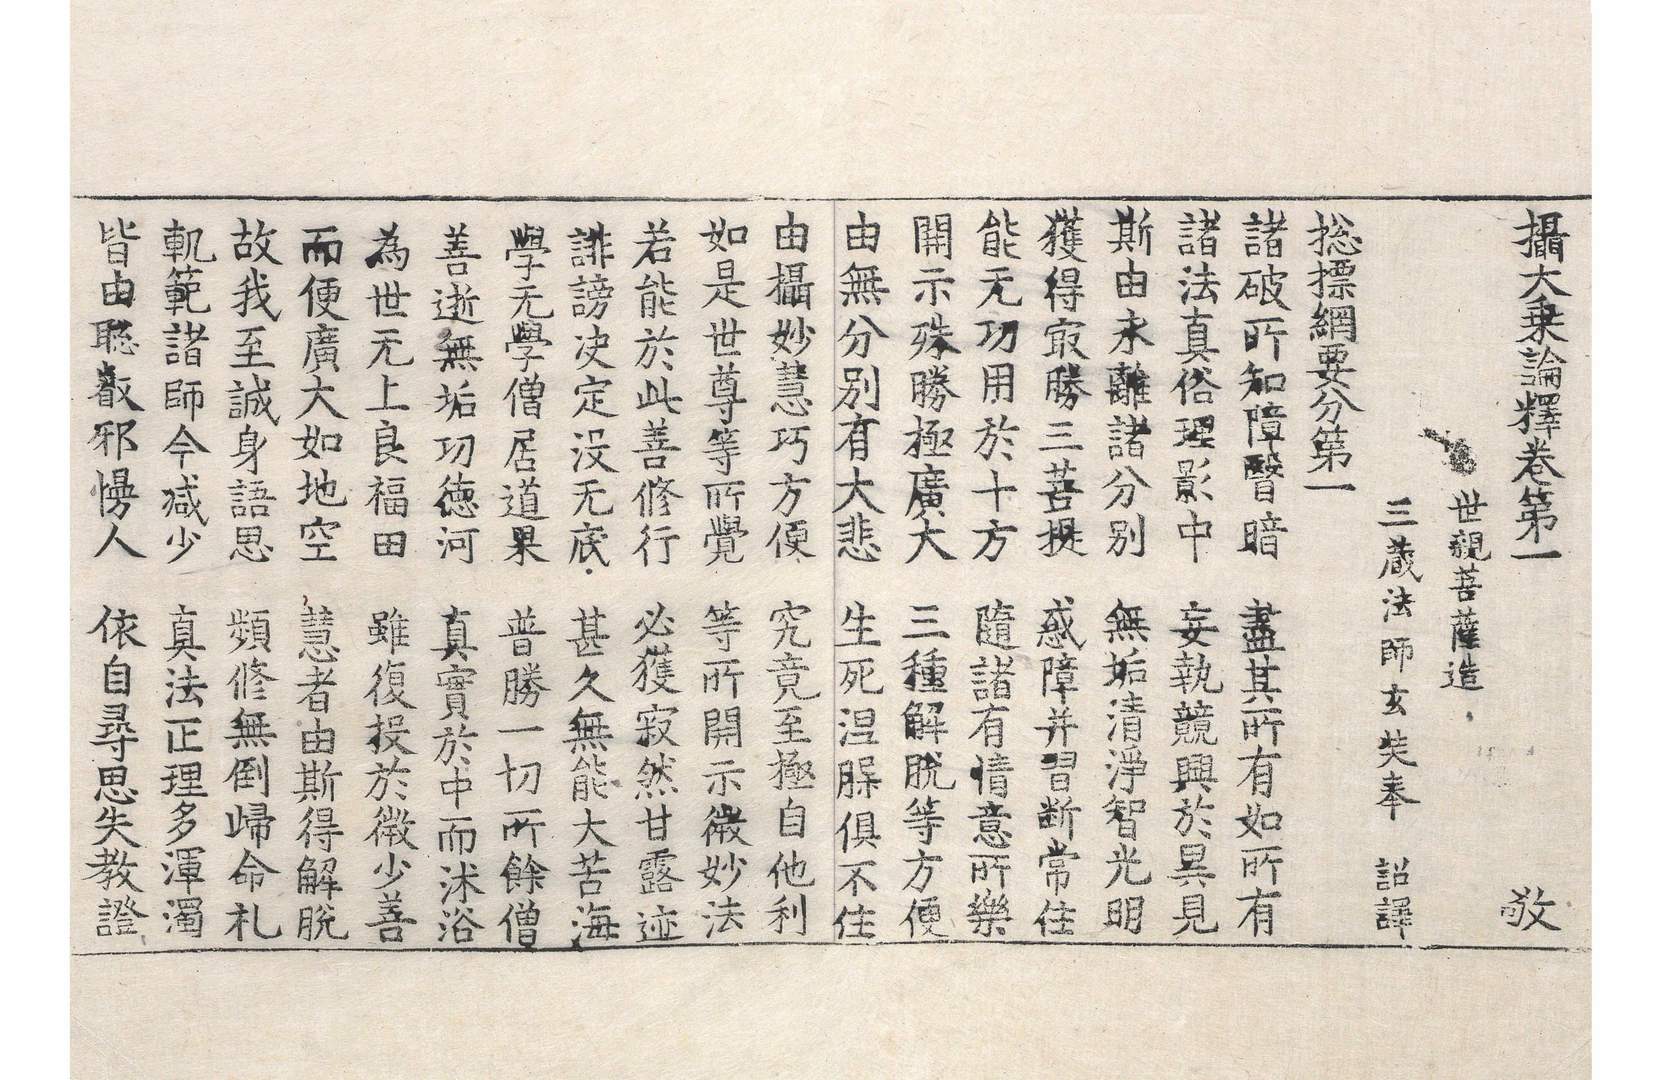 攝大乗論釋卷第一 敬
世親菩薩造
三蔵法師玄奘奉 詔譯
捴摽綱要分第一
諸破所知障瞖暗 盡其所有如所有
諸法真俗理影中 妄執競興於異見
斯由永離諸分別 無垢清淨智光明
獲得冣勝三菩提 惑障并習断常住
能无功用於十方 隨諸有情意所樂
開示殊勝極廣大 三種解脫等方便
由無分別有大悲 生死涅槃俱不住
由攝妙慧巧方便 究竟至極自他利
如是世尊等所覺 等所開示微妙法
若能於此善修行 必獲寂然甘露迹
誹謗决定没无底 甚久無能大苦海
學无學僧居道果 普勝一切所餘僧
善逝無垢功德河 真實於中而沐浴
為世无上良福田 雖復投於微少善
而便廣大如地空 慧者由斯得解脫
故我至誠身語思 頻修無倒歸命礼
軌範諸師今减少 真法正理多渾濁
皆由聦叡邪慢人 依自尋思失教證